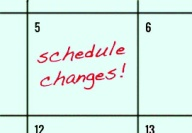 5 6
schedule
changes!
12 13